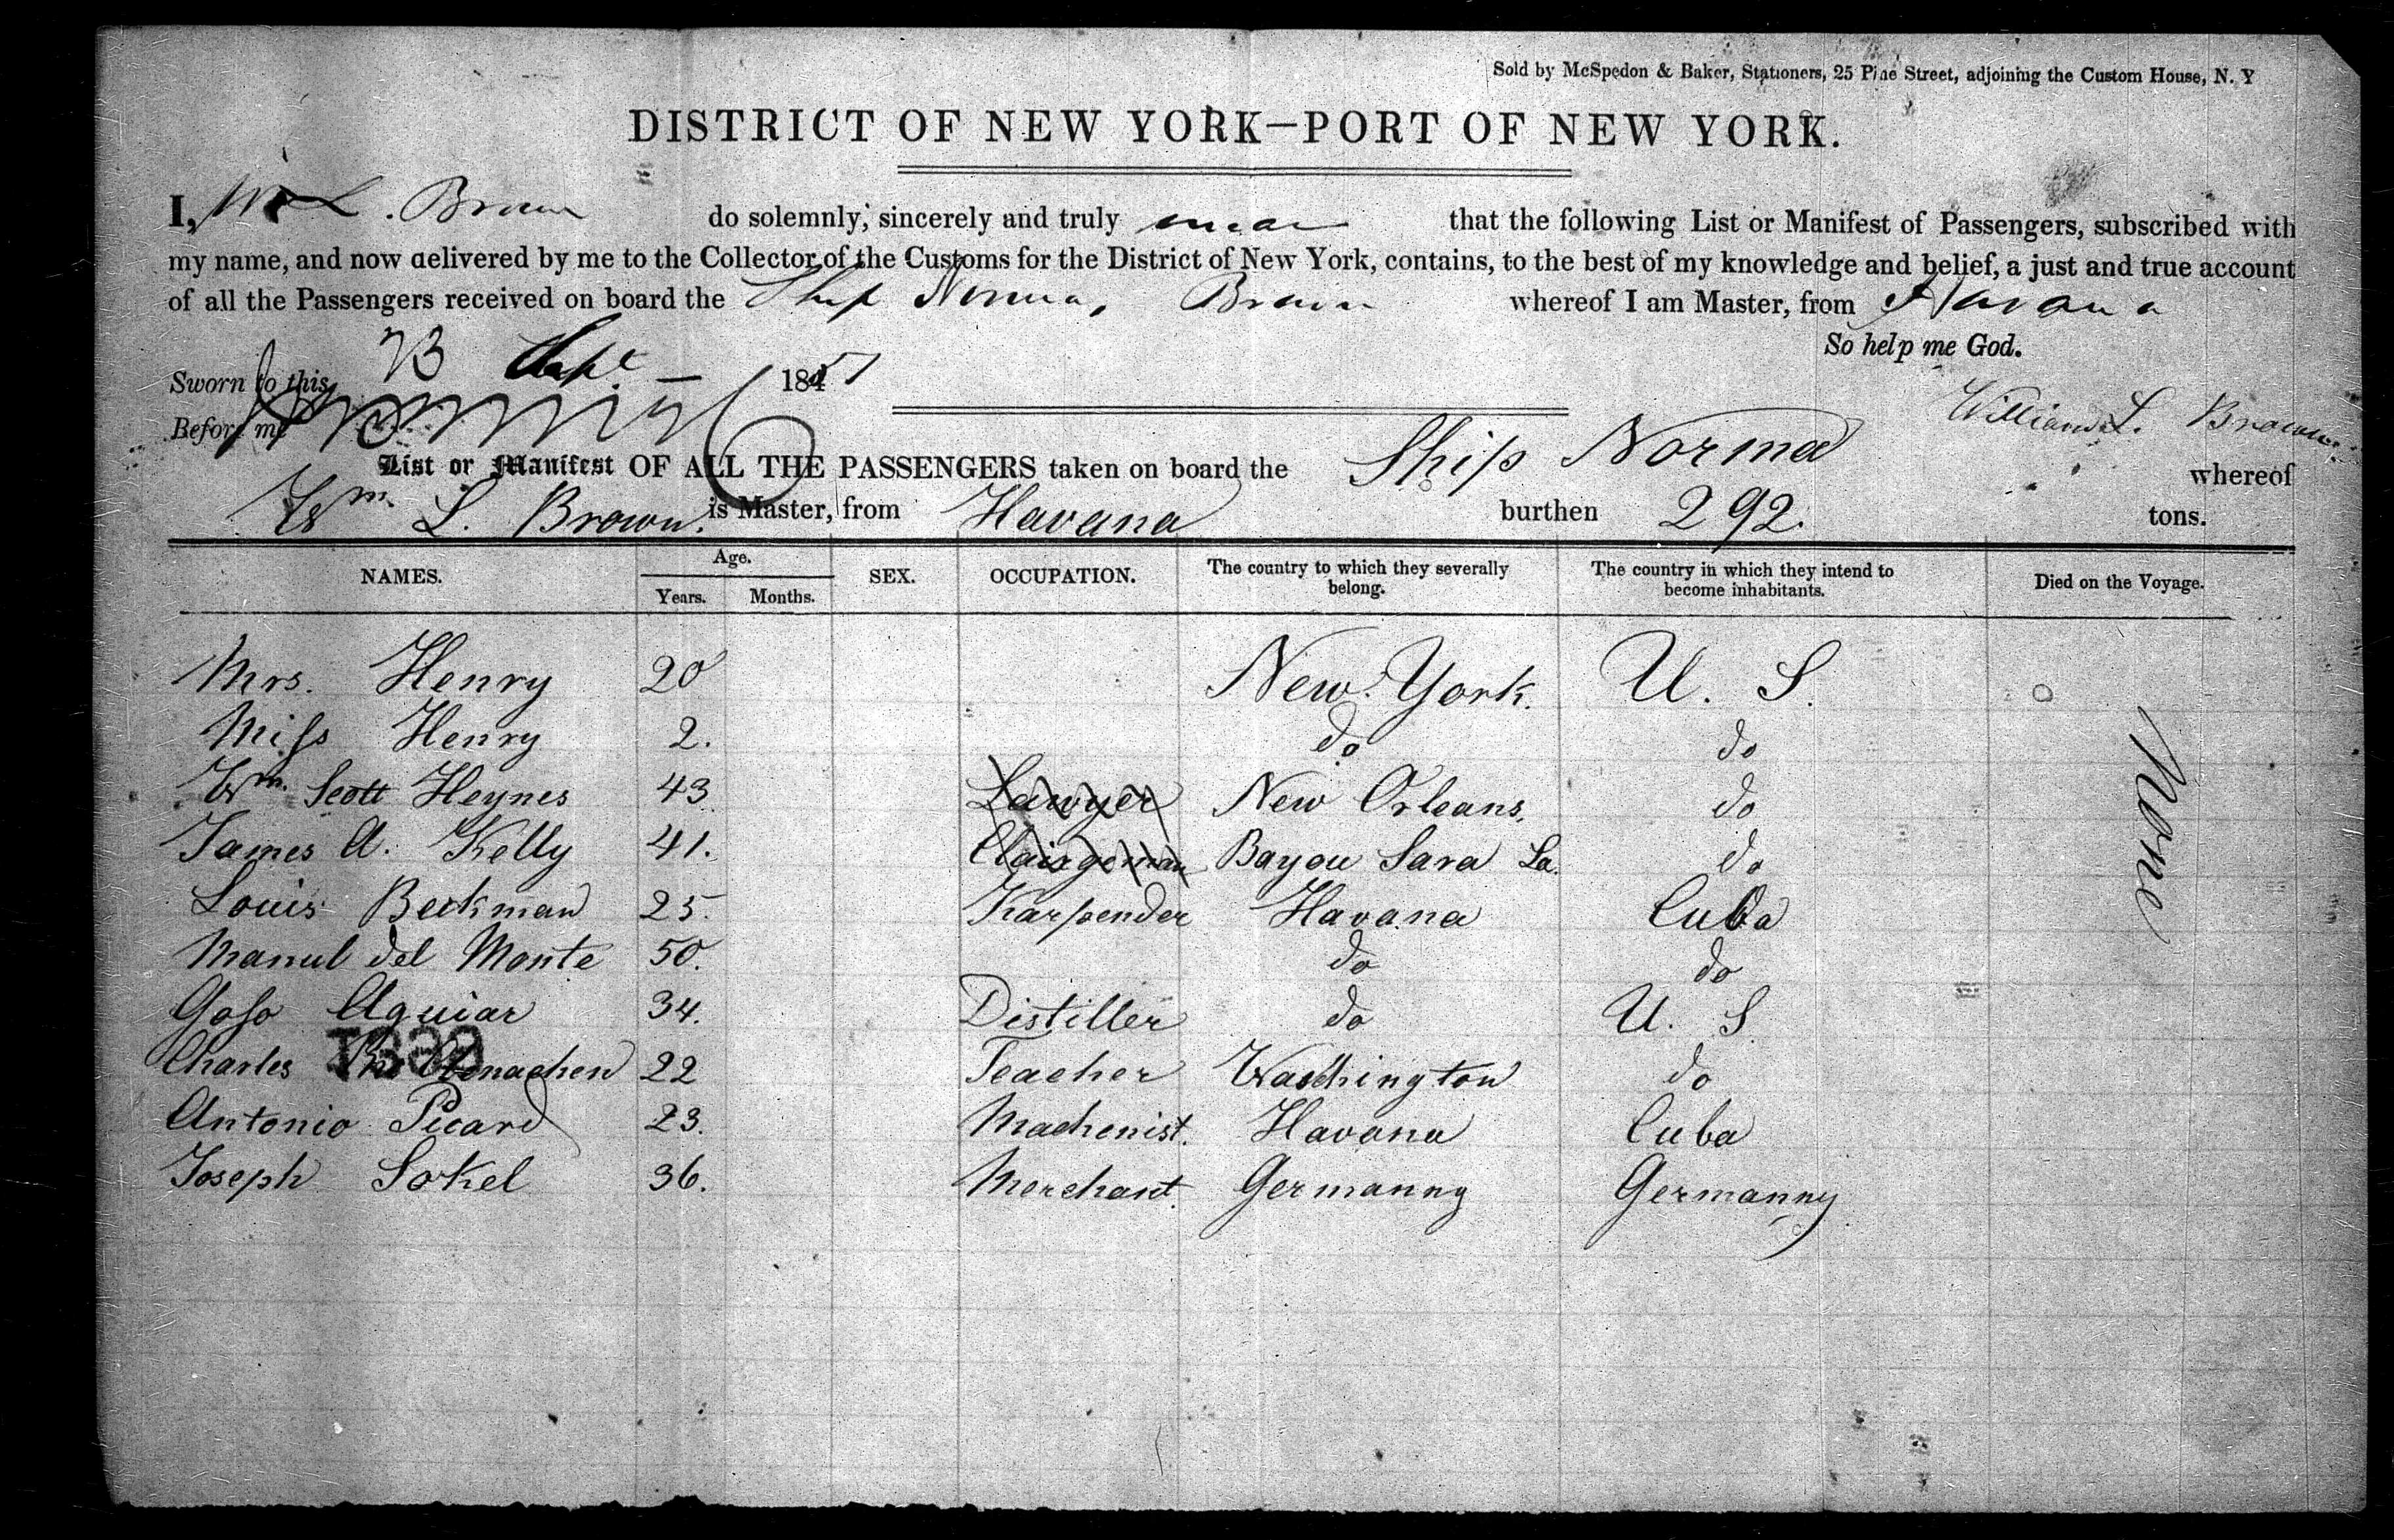 Sold by McSpedon & Baker, Stationers, 25 Pine Street, adjoining the Custom House, N. Y
DISTRICT OF NEW YORK—PORT OF NEW YORK.
I, Wm L. Brown do solemnly, sincerely and truly swear that the following List or Manifest of Passengers, subscribed with
my name, and now delivered by me to the Collector of the Customs for the District of New York, contains, to the best of my knowledge and belief, a just and true account
of all the Passengers received on board the Ship Norma, Brown whereof I am Master, from Havana
So help me God.
Sworn to this 23 Sept 1851
Before me
William L. Brown.
List or Manifest OF ALL THE PASSENGERS taken on board the Ship Norma whereof
Wm. L. Brown. is Master, from Havana burthen 292. tons.
NAMES. Age. Years. Months. SEX. OCCUPATION. The country to which they severally belong. The country in which they intend to become inhabitants. Died on the Voyage.
Mrs. Henry 20 New York. U. S.
Miss Henry 2. do do
Wm. Scott Heynes 43 Lawyer New Orleans, do
James A. Kelly 41. Clairgeman Bayou Sara La. do
Louis Beckman 25. Karpender Havana Cuba
Manul del Monte 50. do do
Goso Aguiar 34. Distiller do U. S.
Charles 22 Teacher Waschington do
Antonio Picard 23. Machenist. Havana Cuba
Joseph Sokel 36. Merchant. Germanny Germanny
None